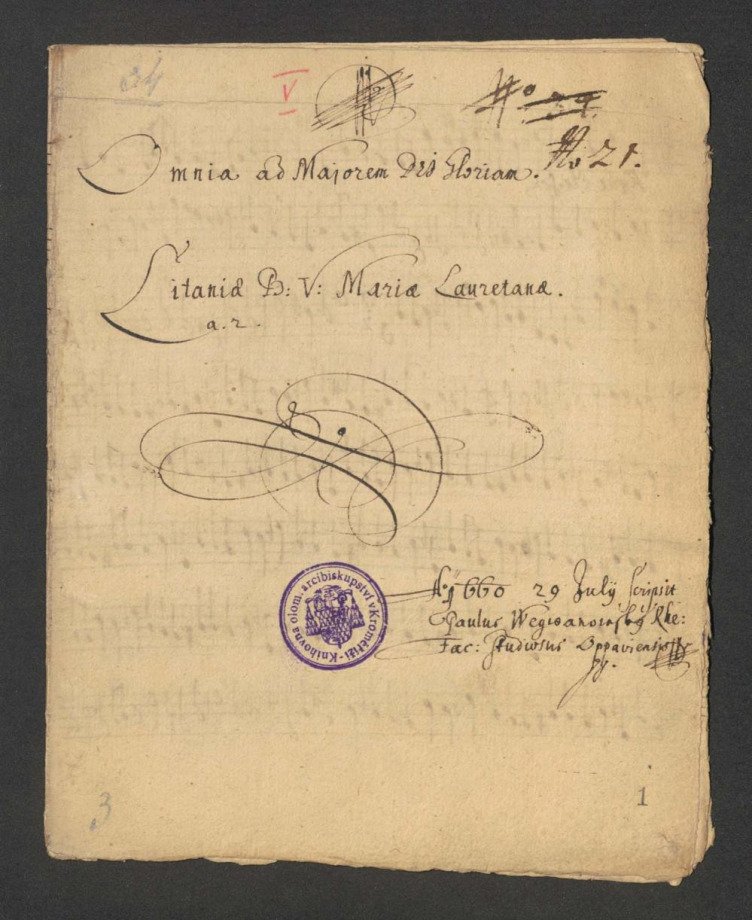 34
V
No 29.
No 21.
Omnia ad Majorem Dei Gloriam.
Litaniæ B: V: Mariæ Lauretanæ.
a. 2.
Knihovna olom. arcibiskupství v Kroměříži
Ao 1660 29 Julÿ scripsit
Paulus Wegwanowsky Rhe:
Fac: Studiosus Oppaviensis
3
1